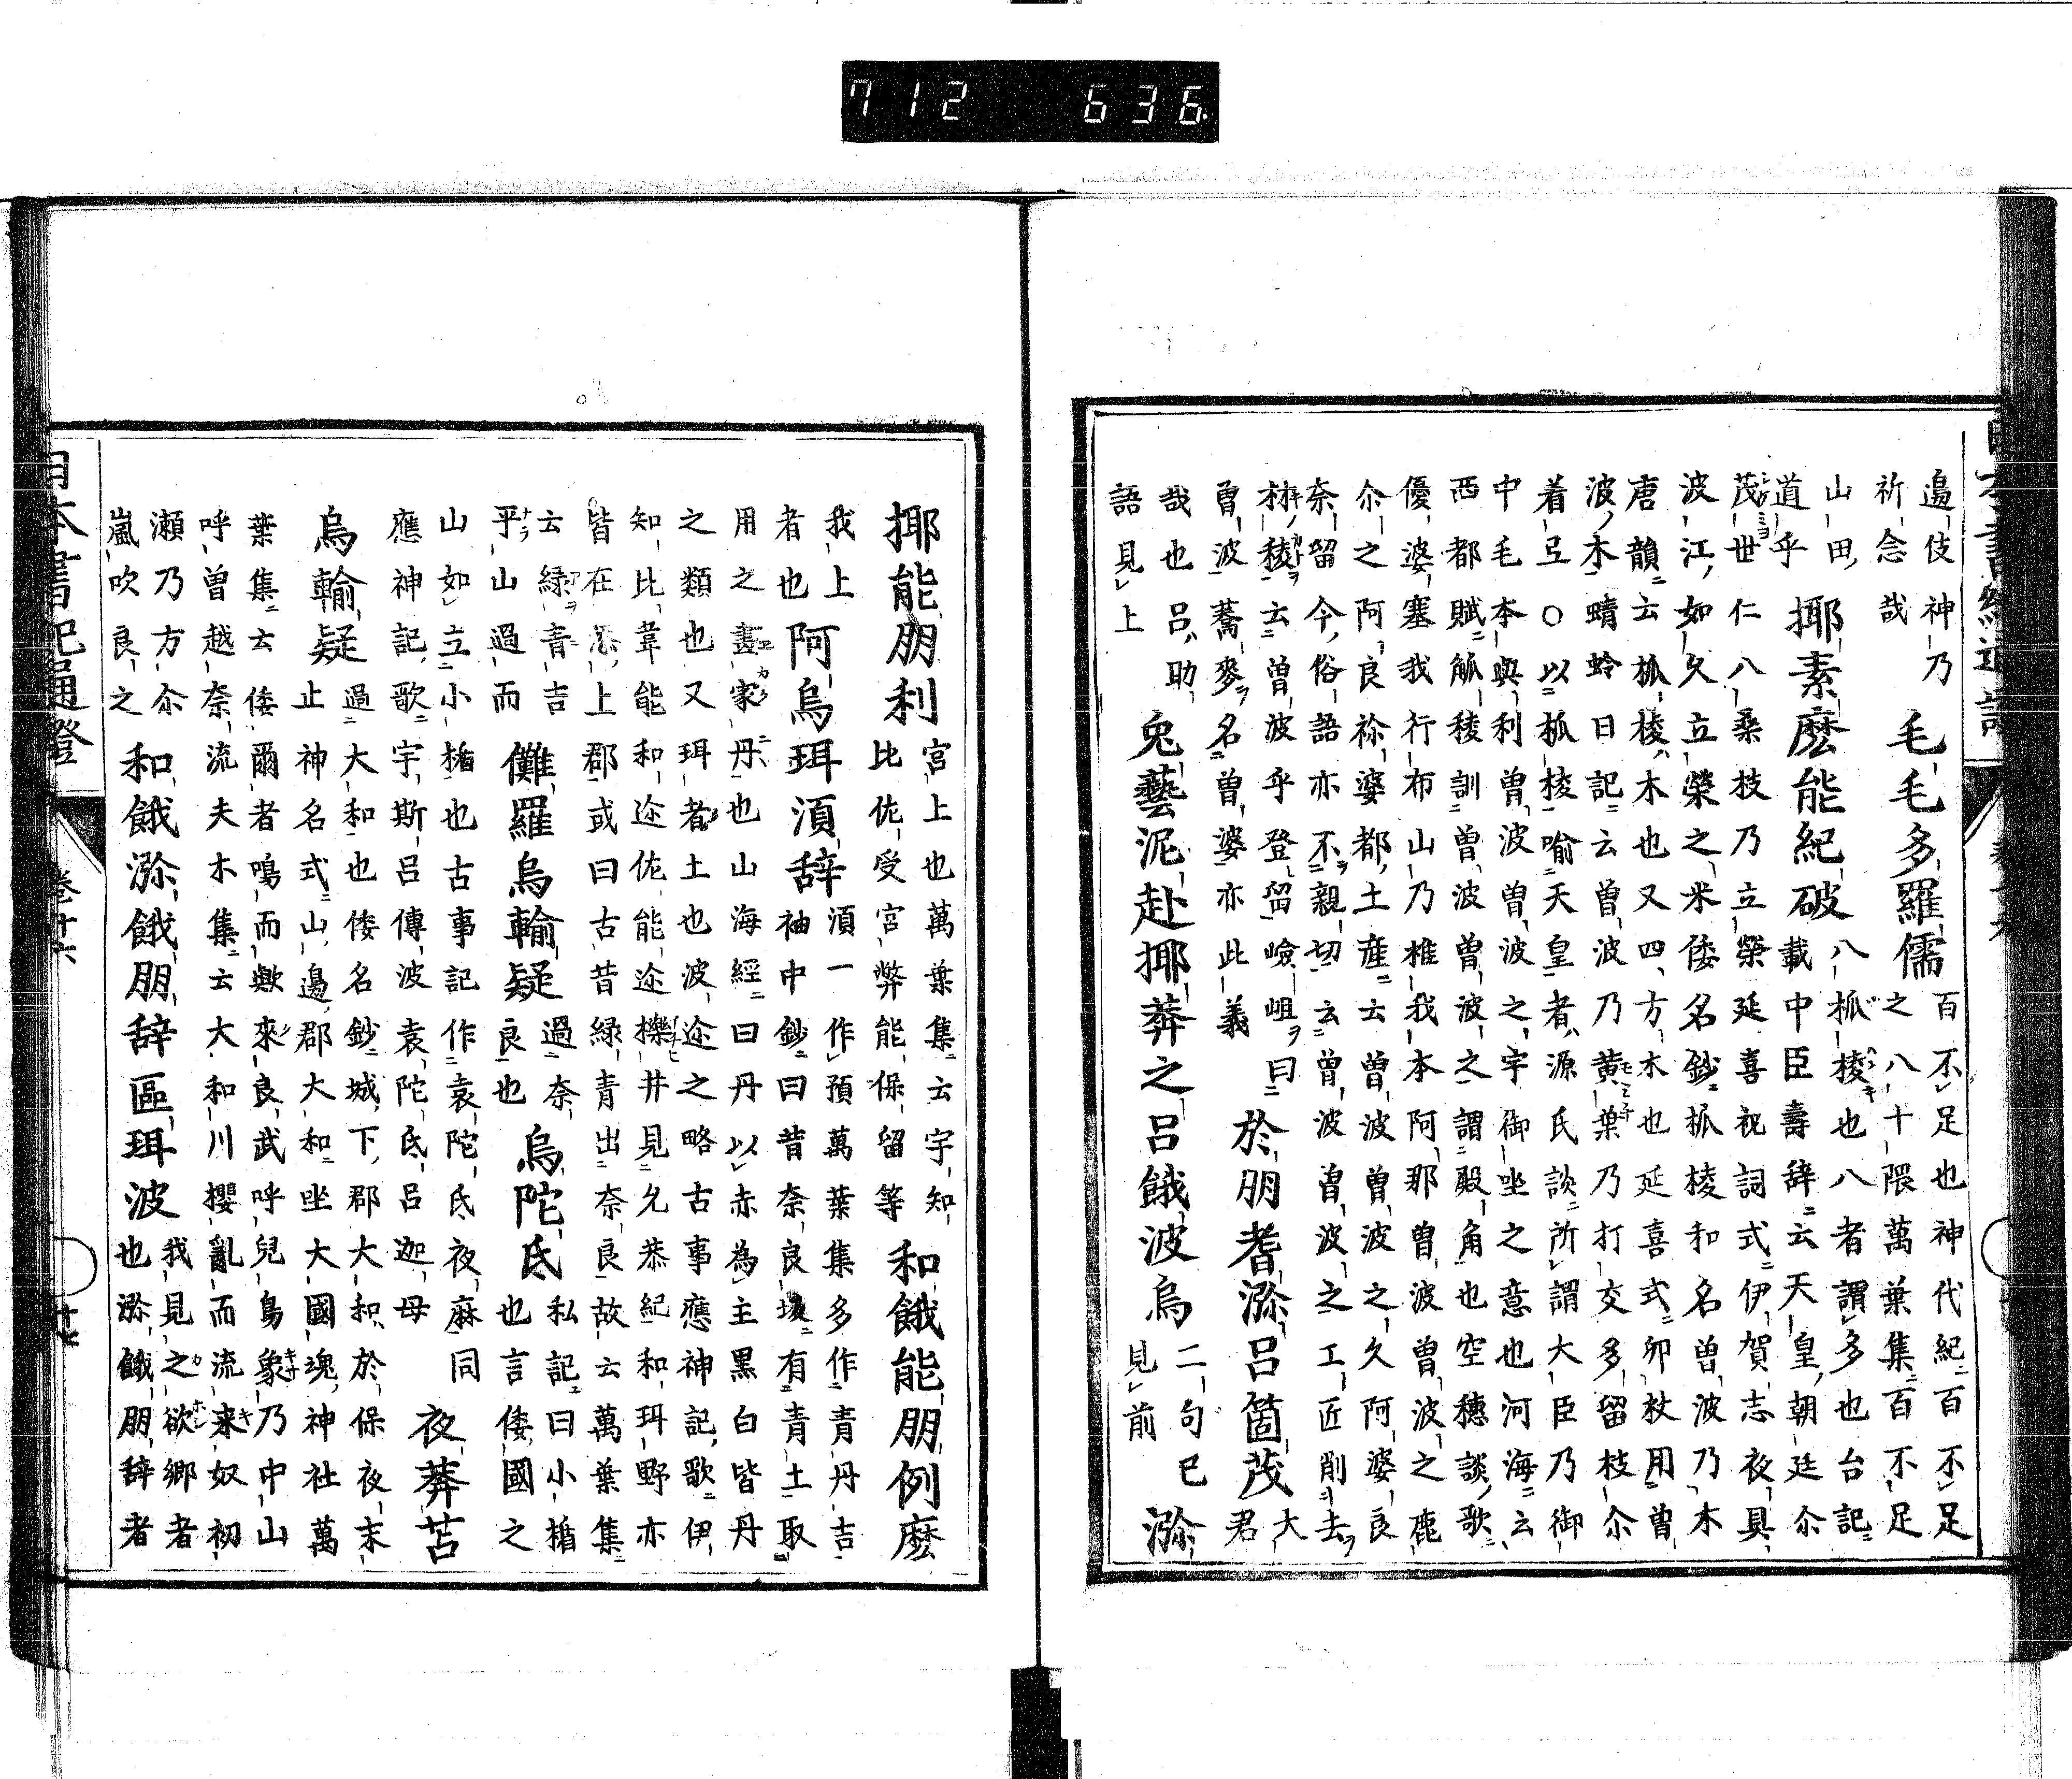 712 636
邉伎神乃
祈念哉
毛毛多羅儒
百不足也神代紀百不足
之八十隈萬葉集百不足
山田道乎
揶素麽能紀破
八抓棱也八者謂多也台記
載中臣壽辞云天皇朝廷尒
茂世仁八桑枝乃立榮延喜祝詞式伊賀志夜具
波江如久立榮之米倭名鈔抓棱和名曽波乃木
唐韻云抓棱木也又四方木也延喜式卯杖用曽
波木蜻蛉日記云曽波乃黄葉乃打交多留枝尒
着弖〇以抓棱喻天皇者源氏談所謂大臣乃御
中毛本與利曽波曽波之宇御坐之意也河海云
西都賦觚稜訓曽波曽波之謂殿角也空穗談歌
優婆塞我行布山乃椎我本阿那曽波曽波之鹿
尒之阿良祢婆都土産云曽波曽波之久阿婆良
奈留今俗語亦不親切云曽波曽波之工匠削去
材稜云曽波乎登留嶮岨曰
曽波蕎麥名曽婆亦此義
於朋耆瀰呂箇茂
大君
哉也呂助
語見上
兔藝泥赴揶莽之呂餓波烏
二句已
見前
瀰
揶能朋利
宮上也萬葉集云宇知
比佐受宮弊能保留等
和餓能朋例麽
我上
者也
阿烏珥湏辞
湏一作預萬葉集多作青丹吉
袖中鈔曰昔奈良坂有青土取
用之畫家丹也山海經曰丹以赤為主黒白皆丹
之類也又珥者土也波迩之略古事記應神記歌伊
知比韋能和迩佐能迩櫟井見允恭紀和珥野亦
皆在添上郡或曰古昔緑青出奈良故云萬葉集
云緑青吉
平山過而
儺羅烏輸疑
過奈
良也
烏陀氐
私記曰小楯
也言倭國之
山如立小楯也古事記作袁陀氐夜麻同
應神記歌宇斯呂傳波袁陀氐呂迦母
夜莽苔
烏輸疑
過大和也倭名鈔城下郡大和於保夜末
止神名式山邉郡大和坐大國魂神社萬
葉集云倭爾者鳴而歟來良武呼兒鳥象乃中山
呼曽越奈流夫木集云大和川櫻亂而流来奴初
瀬乃方尒
嵐吹良之
和餓瀰餓朋辞區珥波
我見之欲郷者
也瀰餓朋辞者
日本書紀通證
卷十六
十七